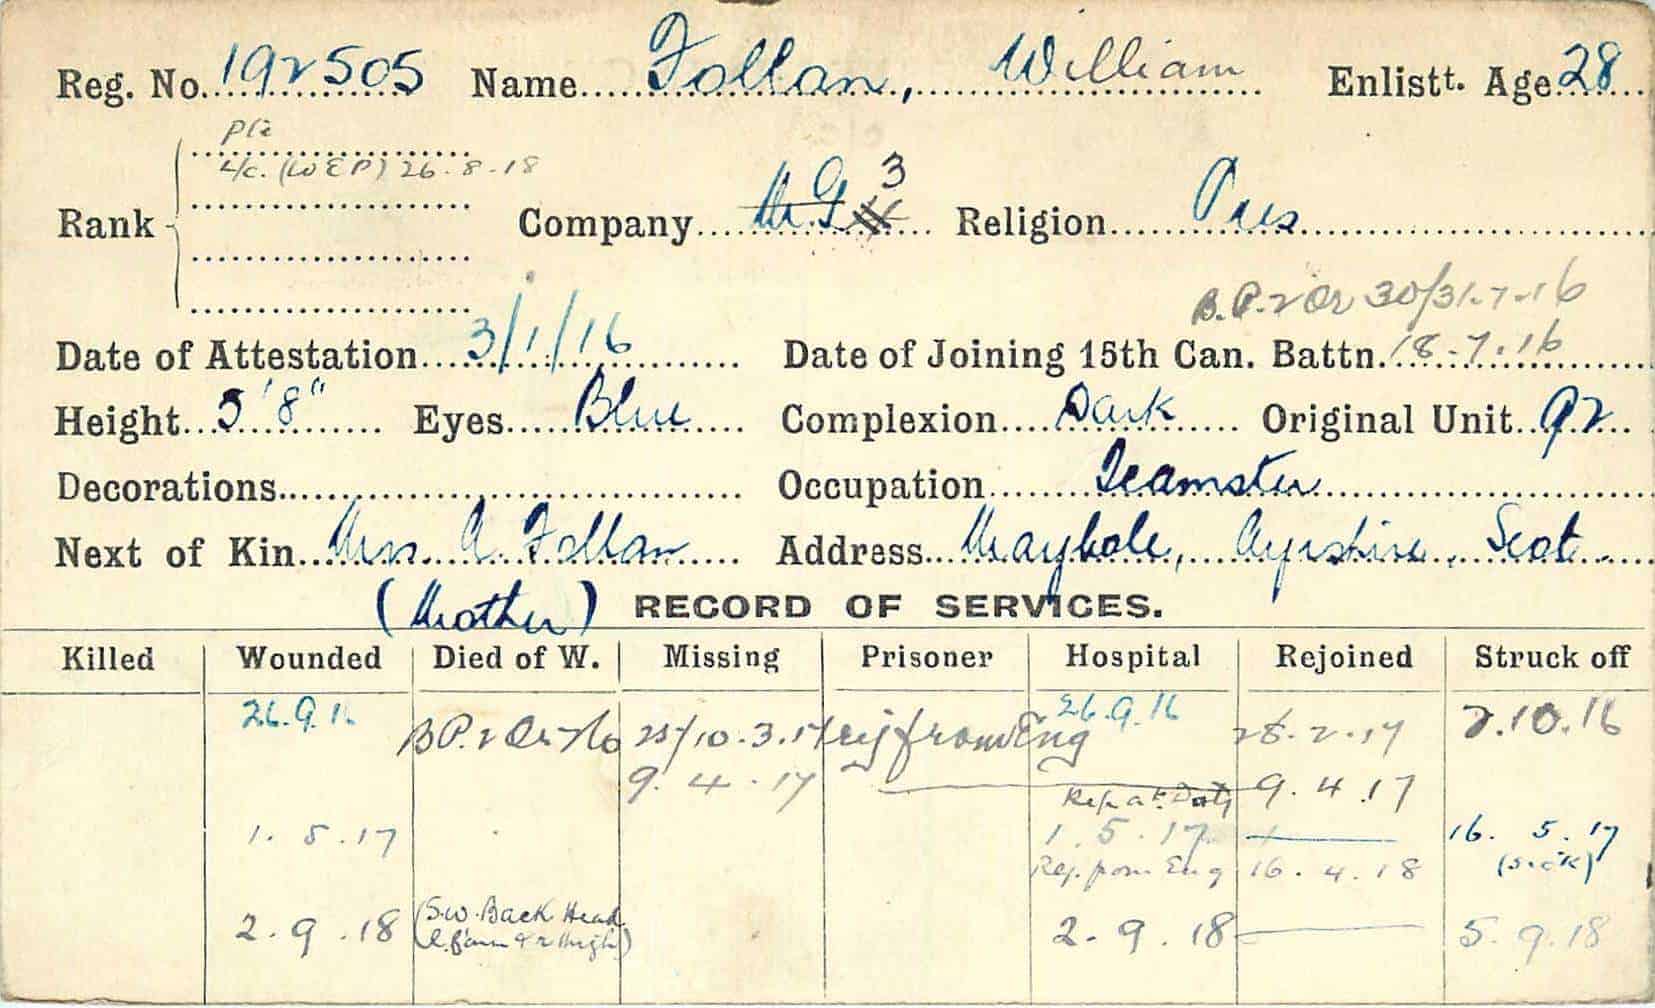 Reg. No. 192505 Name Follan, William Enlistt. Age 28
Pte
L/c. (W E P) 26-8-18
Rank Company M.G 3 Religion Pres
B.P.2 Or 30/31-7-16
Date of Attestation 3/1/16 Date of Joining 15th Can. Battn. 18-7-16
Height 5'8" Eyes Blue Complexion Dark Original Unit 92
Decorations Occupation Teamster
Next of Kin Mrs. A. Follan Address Maybole, Ayrshire, Scot.
(Mother) RECORD OF SERVICES.
Killed Wounded Died of W. Missing Prisoner Hospital Rejoined Struck off
26.9.16 26.9.16 2.10.16
BP.2 Or 25/10.3.17 rej from Eng 28.2.17
9.4.17 Rep at Duty 9.4.17
1.5.17 1.5.17 16.5.17
Rej. from Eng 16.4.18 (Sick)
2.9.18 (S.W. Back Head 2.9.18 5.9.18
& r thigh)